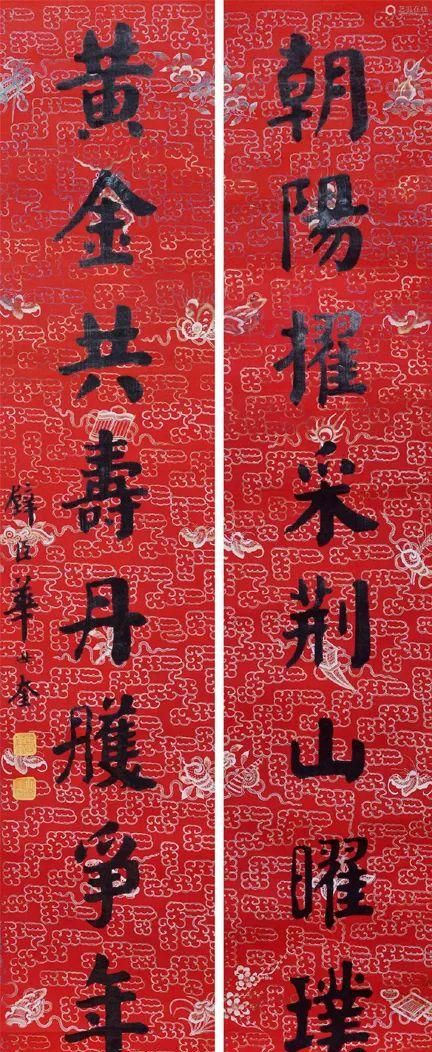 朝陽擢采荆山曜璞
黃金共壽丹雘爭年
壁臣華世奎